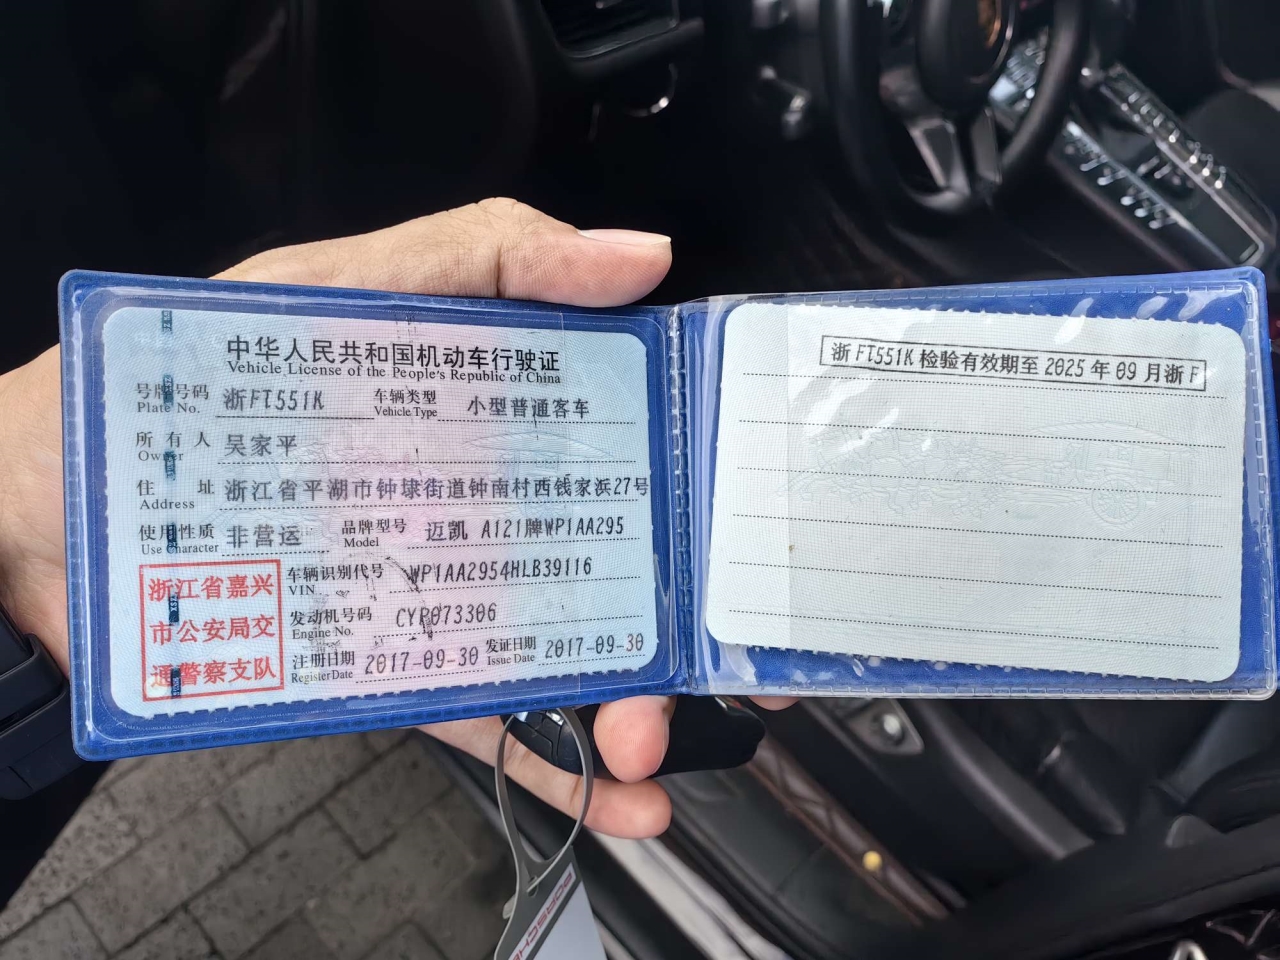 中华人民共和国机动车行驶证
Vehicle License of the People's Republic of China
号牌号码 浙FT551K 车辆类型 小型普通客车
Plate No. Vehicle Type
所有人 吴家平
Owner
住址 浙江省平湖市钟埭街道钟南村西钱家浜27号
Address
使用性质 非营运 品牌型号 迈凯 A121牌WP1AA295
Use Character Model
浙江省嘉兴
市公安局交
通警察支队
车辆识别代号 WP1AA2954HLB39116
VIN
发动机号码 CYP073306
Engine No.
注册日期 2017-09-30 发证日期 2017-09-30
Register Date Issue Date
浙FT551K 检验有效期至 2025 年 09 月浙F
PORSCHE